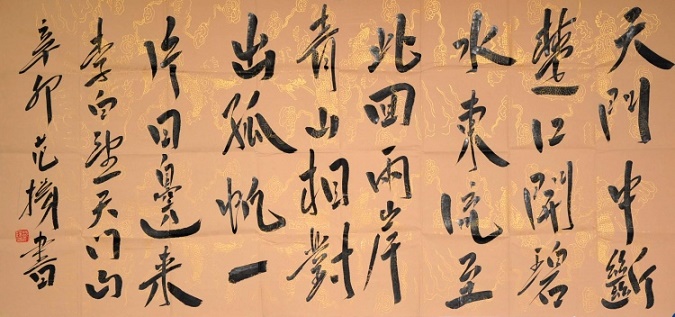 天門中斷
楚江開碧
水東流至
北回兩岸
青山相對
出孤帆一
片日邊来
李白望天门山
辛卯范横書